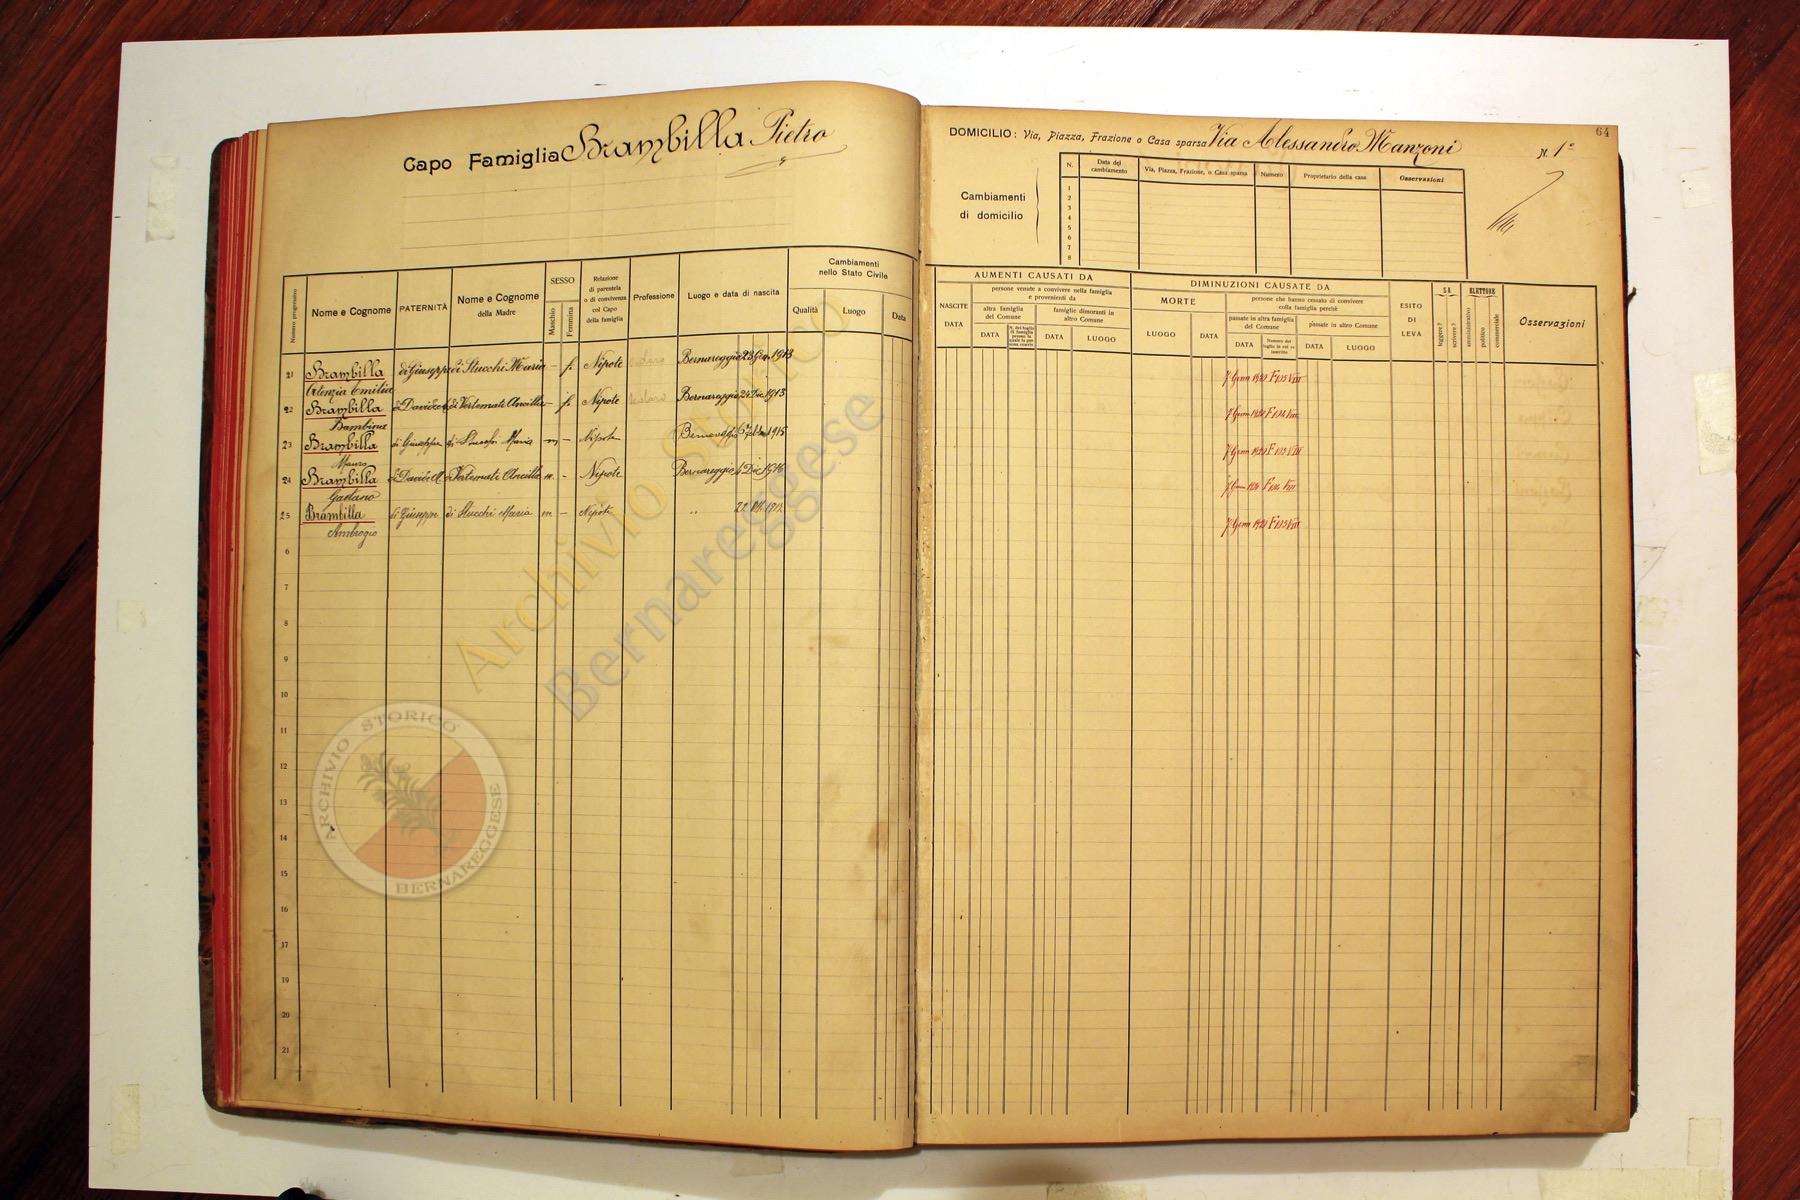 Capo Famiglia Brambilla Pietro
Numero progressivo
Nome e Cognome
PATERNITÀ
Nome e Cognome
della Madre
SESSO
Maschio
Femmina
Relazione
di parentela
o di convivenza
col Capo
della famiglia
Professione
Luogo e data di nascita
Cambiamenti
nello Stato Civile
Qualità
Luogo
Data
21 Brambilla di Giuseppe di Stucchi Maria – f. Nipote scolara Bernareggio 23 1913
Ortenzia Emilia
22 Brambilla di Davide di Vertemati Ancilla – f. Nipote scolara Bernareggio 24 Dic 1913
Bambina
23 Brambilla di Giuseppe di Stucchi Maria m – Nipote Bernareggio 1915
Mauro
24 Brambilla di Davide di Vertemati Ancilla m. – Nipote Bernareggio 4 Dic 1916
Gaetano
25 Brambilla di Giuseppe di Stucchi Maria m – Nipote „
Ambrogio
6
7
8
9
10
11
12
13
14
15
16
17
18
19
20
21
64
DOMICILIO: Via, Piazza, Frazione o Casa sparsa Via Alessandro Manzoni N. 1°
Cambiamenti
di domicilio
N.
Data del
cambiamento
Via, Piazza, Frazione, o Casa sparsa
Numero
Proprietario della casa
Osservazioni
1
2
3
4
5
6
7
8
AUMENTI CAUSATI DA
NASCITE
DATA
persone venute a convivere nella famiglia
e provenienti da
altra famiglia
del Comune
famiglie dimoranti in
altro Comune
DATA
N. del foglio
di famiglia
DATA
LUOGO
DIMINUZIONI CAUSATE DA
MORTE
LUOGO
DATA
persone che hanno cessato di convivere
colla famiglia perchè
passate in altra famiglia
del Comune
passate in altro Comune
DATA
Numero del
foglio in cui
DATA
LUOGO
ESITO
DI
LEVA
SA
leggere?
scrivere?
ELETTORE
amministrativo
politico
commerciale
Osservazioni
7 Genn 1920 F 115 VIII
7 Genn 1920
7 Genn 1920 F 115 VIII
7 Genn
7 Genn 1920 F 115 VIII
Archivio storico
Bernareggese
ARCHIVIO STORICO
BERNAREGGESE